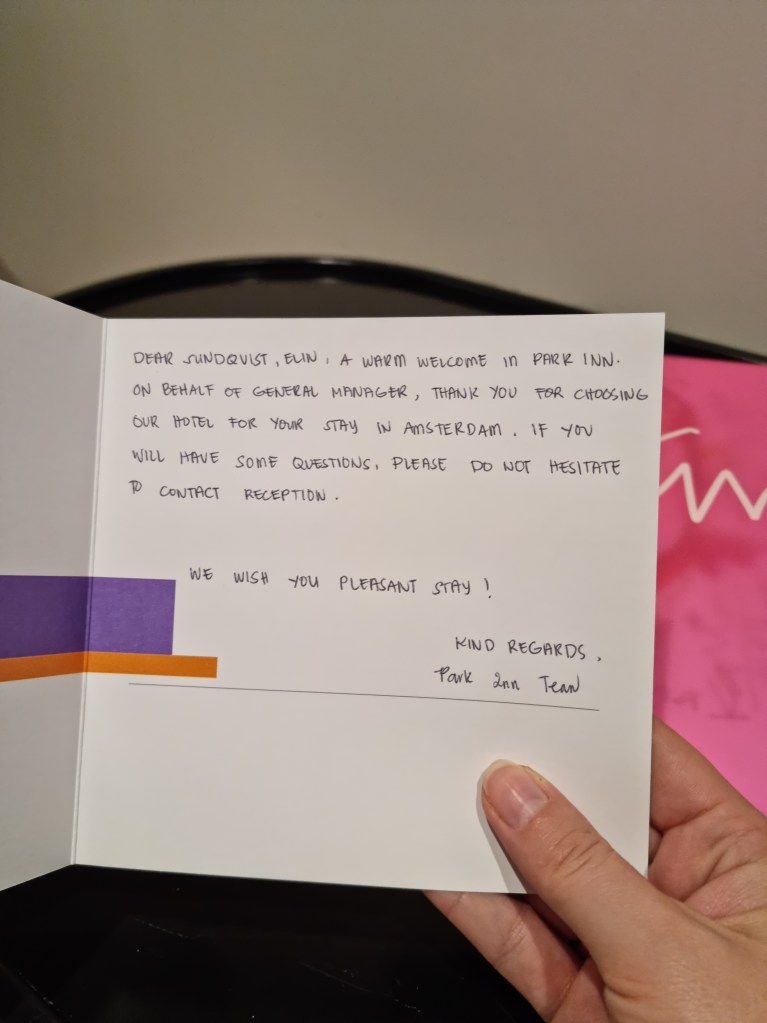 DEAR SUNDQVIST, ELIN, A WARM WELCOME IN PARK INN.
ON BEHALF OF GENERAL MANAGER, THANK YOU FOR CHOOSING
OUR HOTEL FOR YOUR STAY IN AMSTERDAM. IF YOU
WILL HAVE SOME QUESTIONS, PLEASE DO NOT HESITATE
TO CONTACT RECEPTION.
WE WISH YOU PLEASANT STAY!
KIND REGARDS,
Park Inn Team